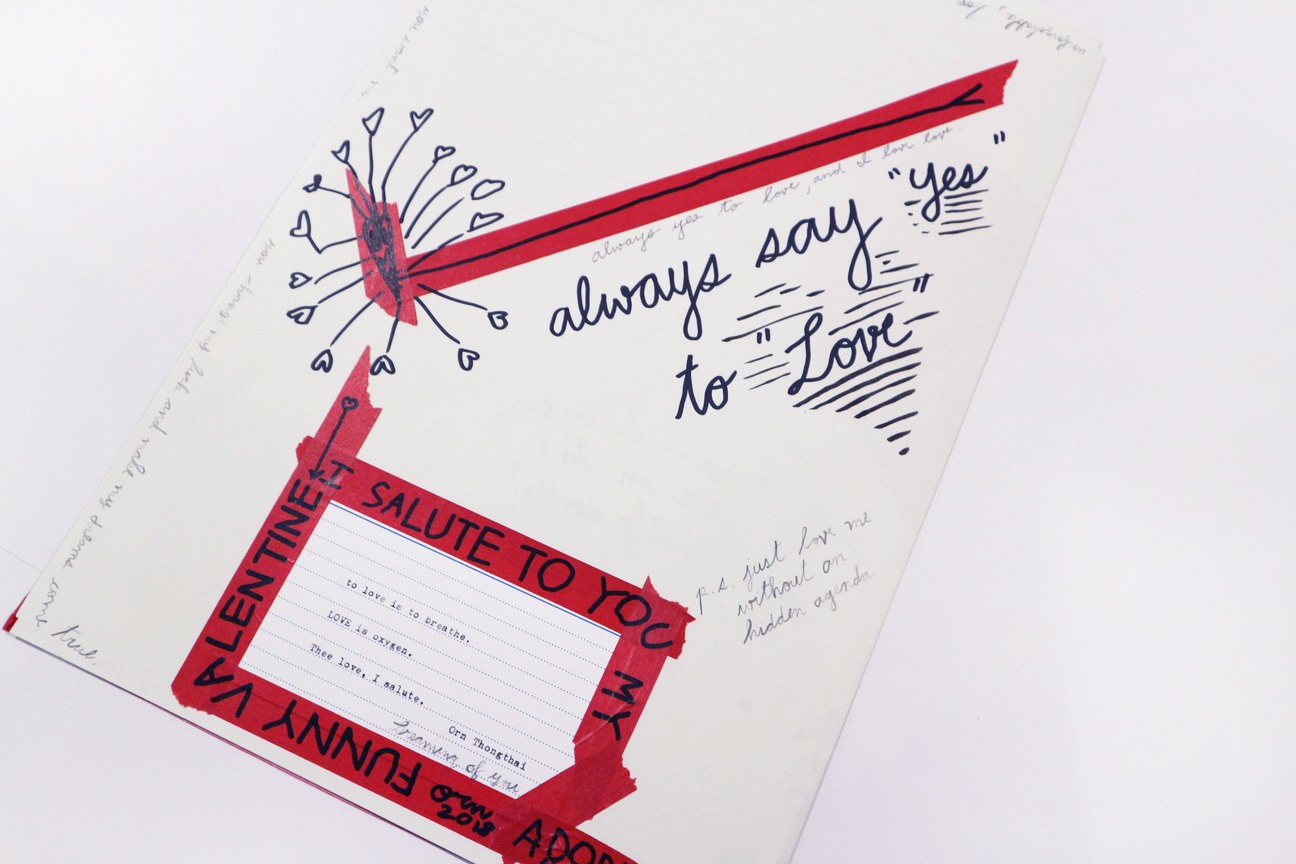 always yes to love, and I love love.
always say "yes"
to "Love"
I SALUTE TO YOU
MY
FUNNY VALENTINE
to love is to breathe.
LOVE is oxygen.
Thee love, I salute.
Orn Thongthai
Dreaming of you
orn
2018
p.s. just love me
without an
hidden agenda
you change my luck and make my dreams come
true.